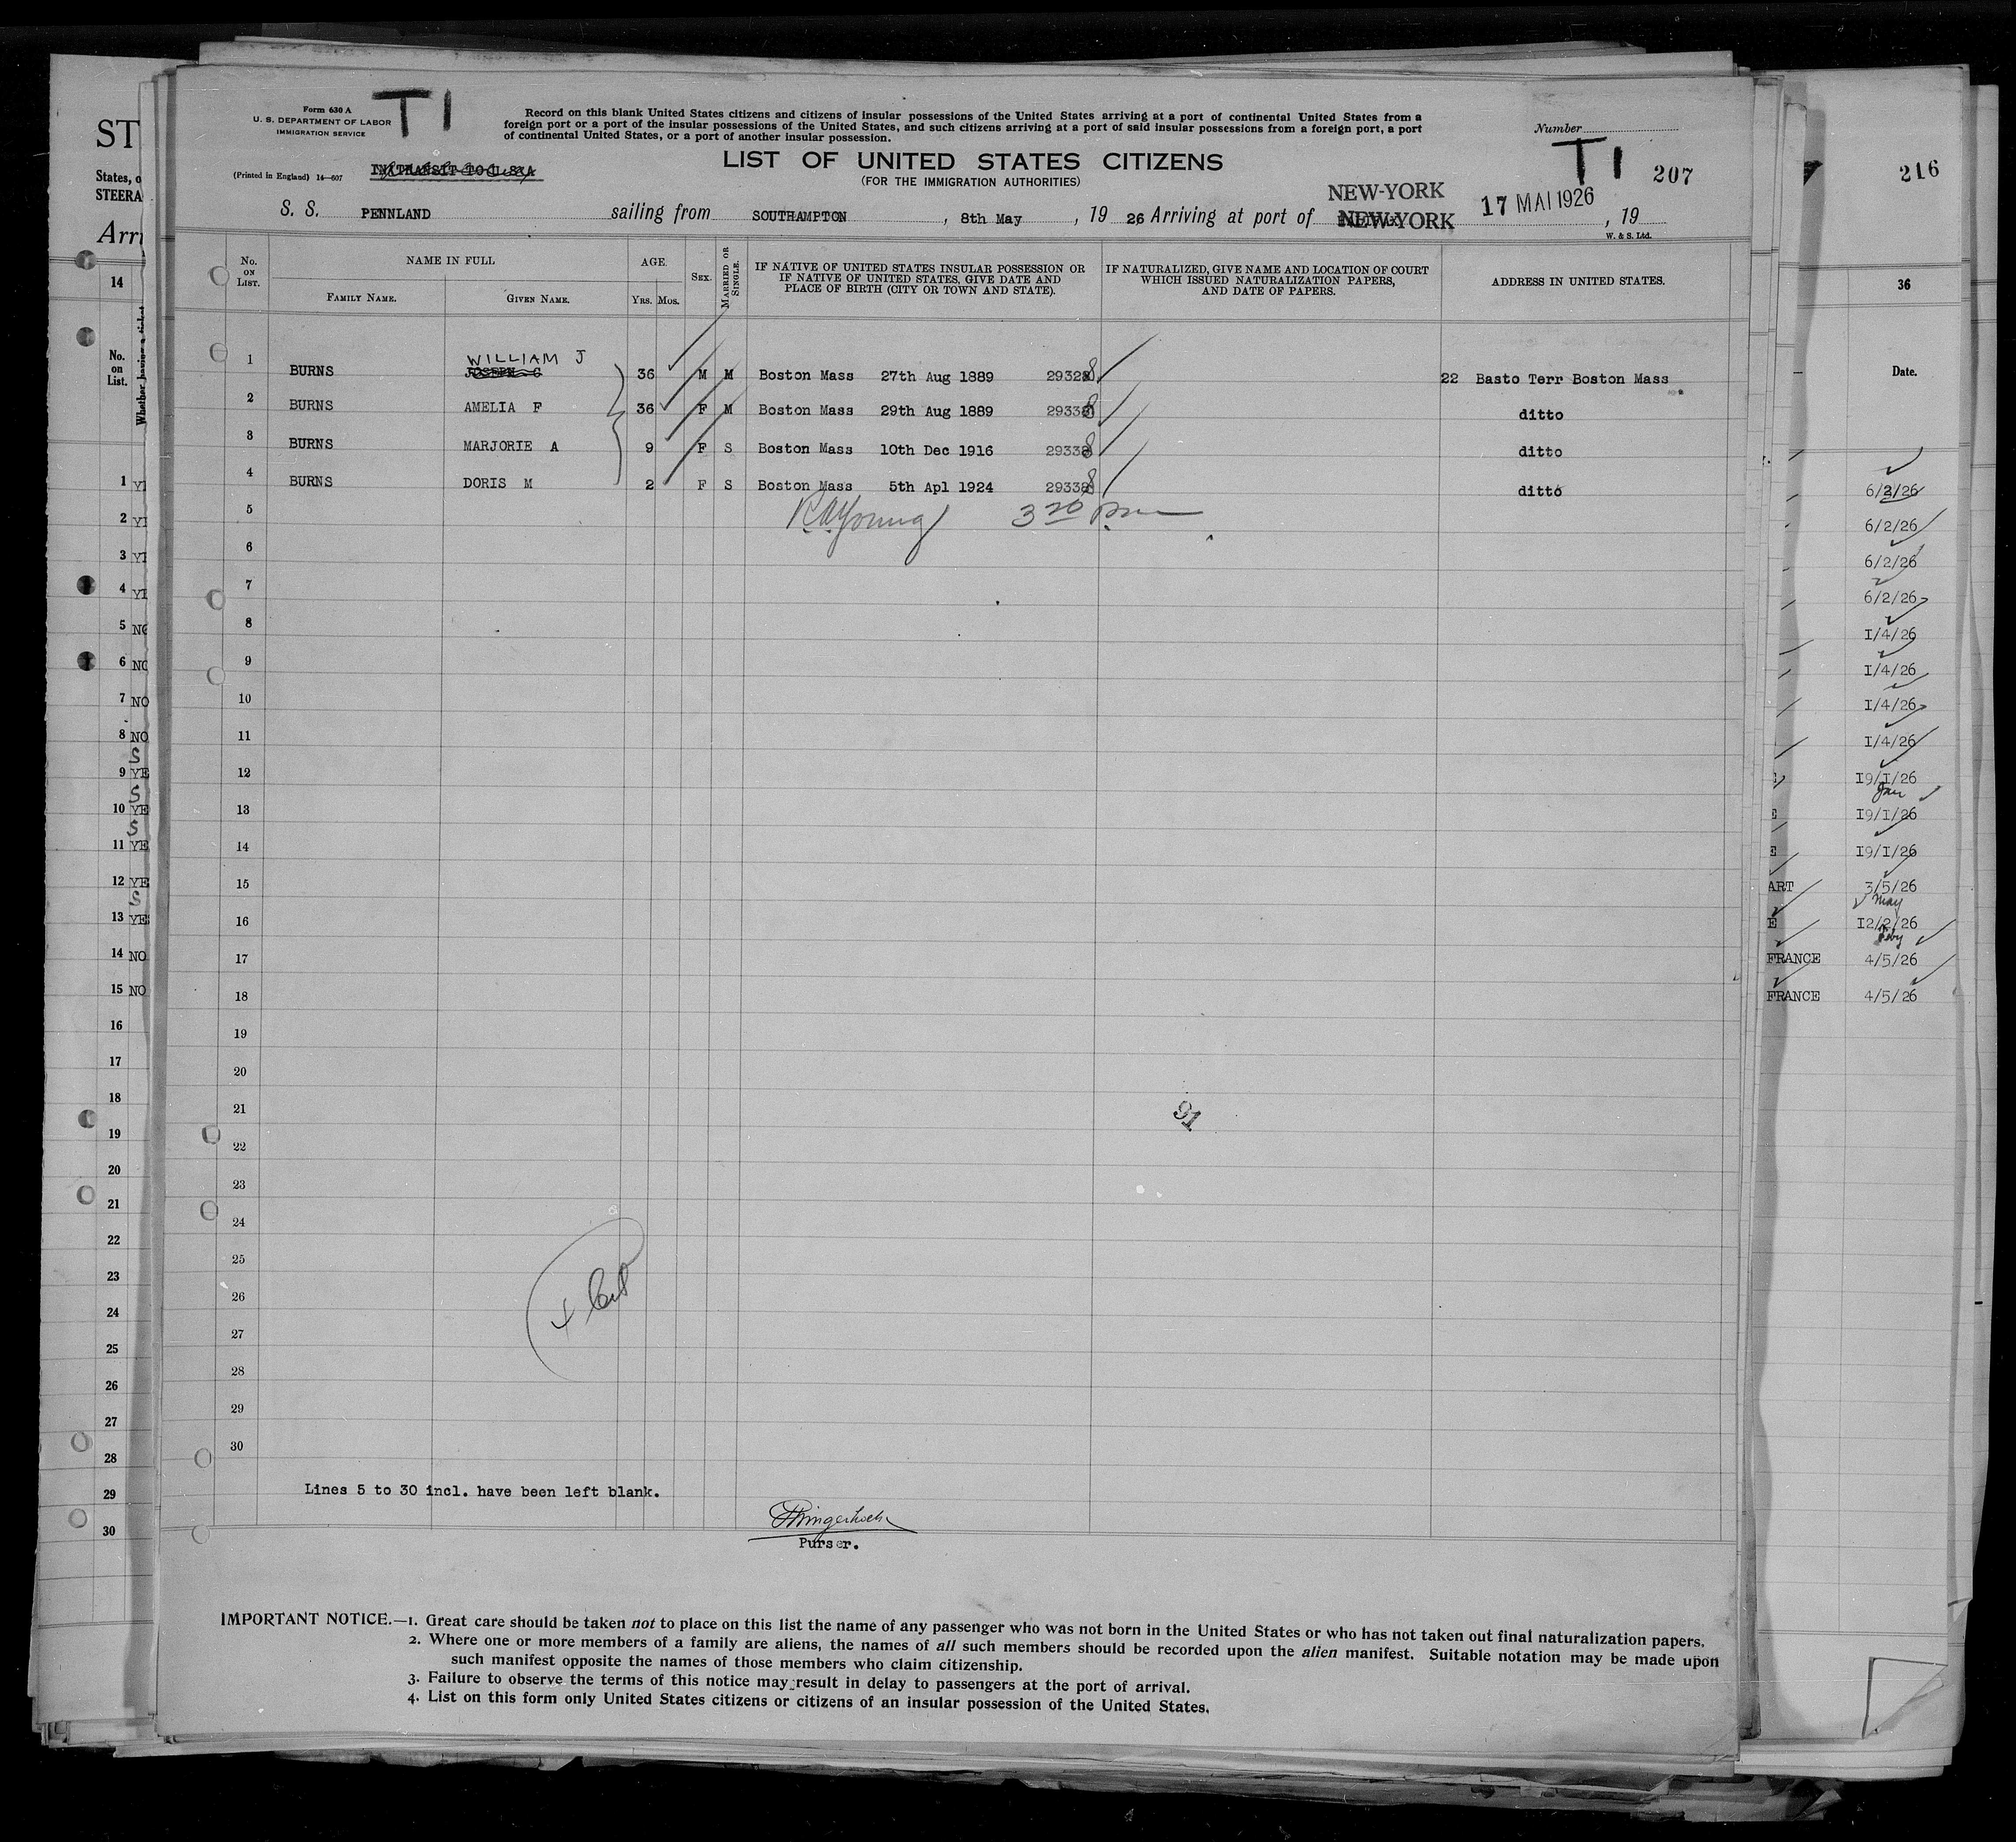 Form 630 A
U. S. DEPARTMENT OF LABOR
IMMIGRATION SERVICE
T1
Record on this blank United States citizens and citizens of insular possessions of the United States arriving at a port of continental United States from a
foreign port or a port of the insular possessions of the United States, and such citizens arriving at a port of said insular possessions from a foreign port, a port
of continental United States, or a port of another insular possession.
Number
(Printed in England) 14—607
IN TRANSIT TO U.S.A
LIST OF UNITED STATES CITIZENS
(FOR THE IMMIGRATION AUTHORITIES)
T1 207
NEW-YORK
S. S. PENNLAND sailing from SOUTHAMPTON , 8th May , 19 26 Arriving at port of NEW-YORK 17 MAI 1926 , 19
W. & S. Ltd.
No. ON LIST. NAME IN FULL AGE. SEX. MARRIED OR SINGLE. IF NATIVE OF UNITED STATES INSULAR POSSESSION OR IF NATIVE OF UNITED STATES, GIVE DATE AND PLACE OF BIRTH (CITY OR TOWN AND STATE). IF NATURALIZED, GIVE NAME AND LOCATION OF COURT WHICH ISSUED NATURALIZATION PAPERS, AND DATE OF PAPERS. ADDRESS IN UNITED STATES.
FAMILY NAME. GIVEN NAME. YRS. MOS.
WILLIAM J
1 BURNS JOSEPH G 36 M M Boston Mass 27th Aug 1889 29328 22 Basto Terr Boston Mass
2 BURNS AMELIA F 36 F M Boston Mass 29th Aug 1889 29338 ditto
3 BURNS MARJORIE A 9 F S Boston Mass 10th Dec 1916 29338 ditto
4 BURNS DORIS M 2 F S Boston Mass 5th Apl 1924 29338 ditto
5 R.A.Young 3 20 Pm
6
7
8
9
10
11
12
13
14
15
16
17
18
19
20
21 91
22
23
24
25
26
27
28
29
30
Lines 5 to 30 incl. have been left blank.
Purser.
IMPORTANT NOTICE.—1. Great care should be taken not to place on this list the name of any passenger who was not born in the United States or who has not taken out final naturalization papers.
2. Where one or more members of a family are aliens, the names of all such members should be recorded upon the alien manifest. Suitable notation may be made upon
such manifest opposite the names of those members who claim citizenship.
3. Failure to observe the terms of this notice may result in delay to passengers at the port of arrival.
4. List on this form only United States citizens or citizens of an insular possession of the United States.
ST
States, o
STEERA
Arri
14
No. on List.
Whether having a ticket
1 YE
2 YE
3 YE
4 YE
5 NO
6 NO
7 NO
8 NO
S
9 YE
S
10 YE
S
11 YE
12 YE
S
13 YES
14 NO
15 NO
16
17
18
19
20
21
22
23
24
25
26
27
28
29
30
216
36
Date.
6/2/26
6/2/26
6/2/26
6/2/26
I/4/26
I/4/26
I/4/26
I/4/26
I9/I/26
Jan
E I9/I/26
E I9/I/26
ART 3/5/26
May
E I2/2/26
Feby
FRANCE 4/5/26
FRANCE 4/5/26